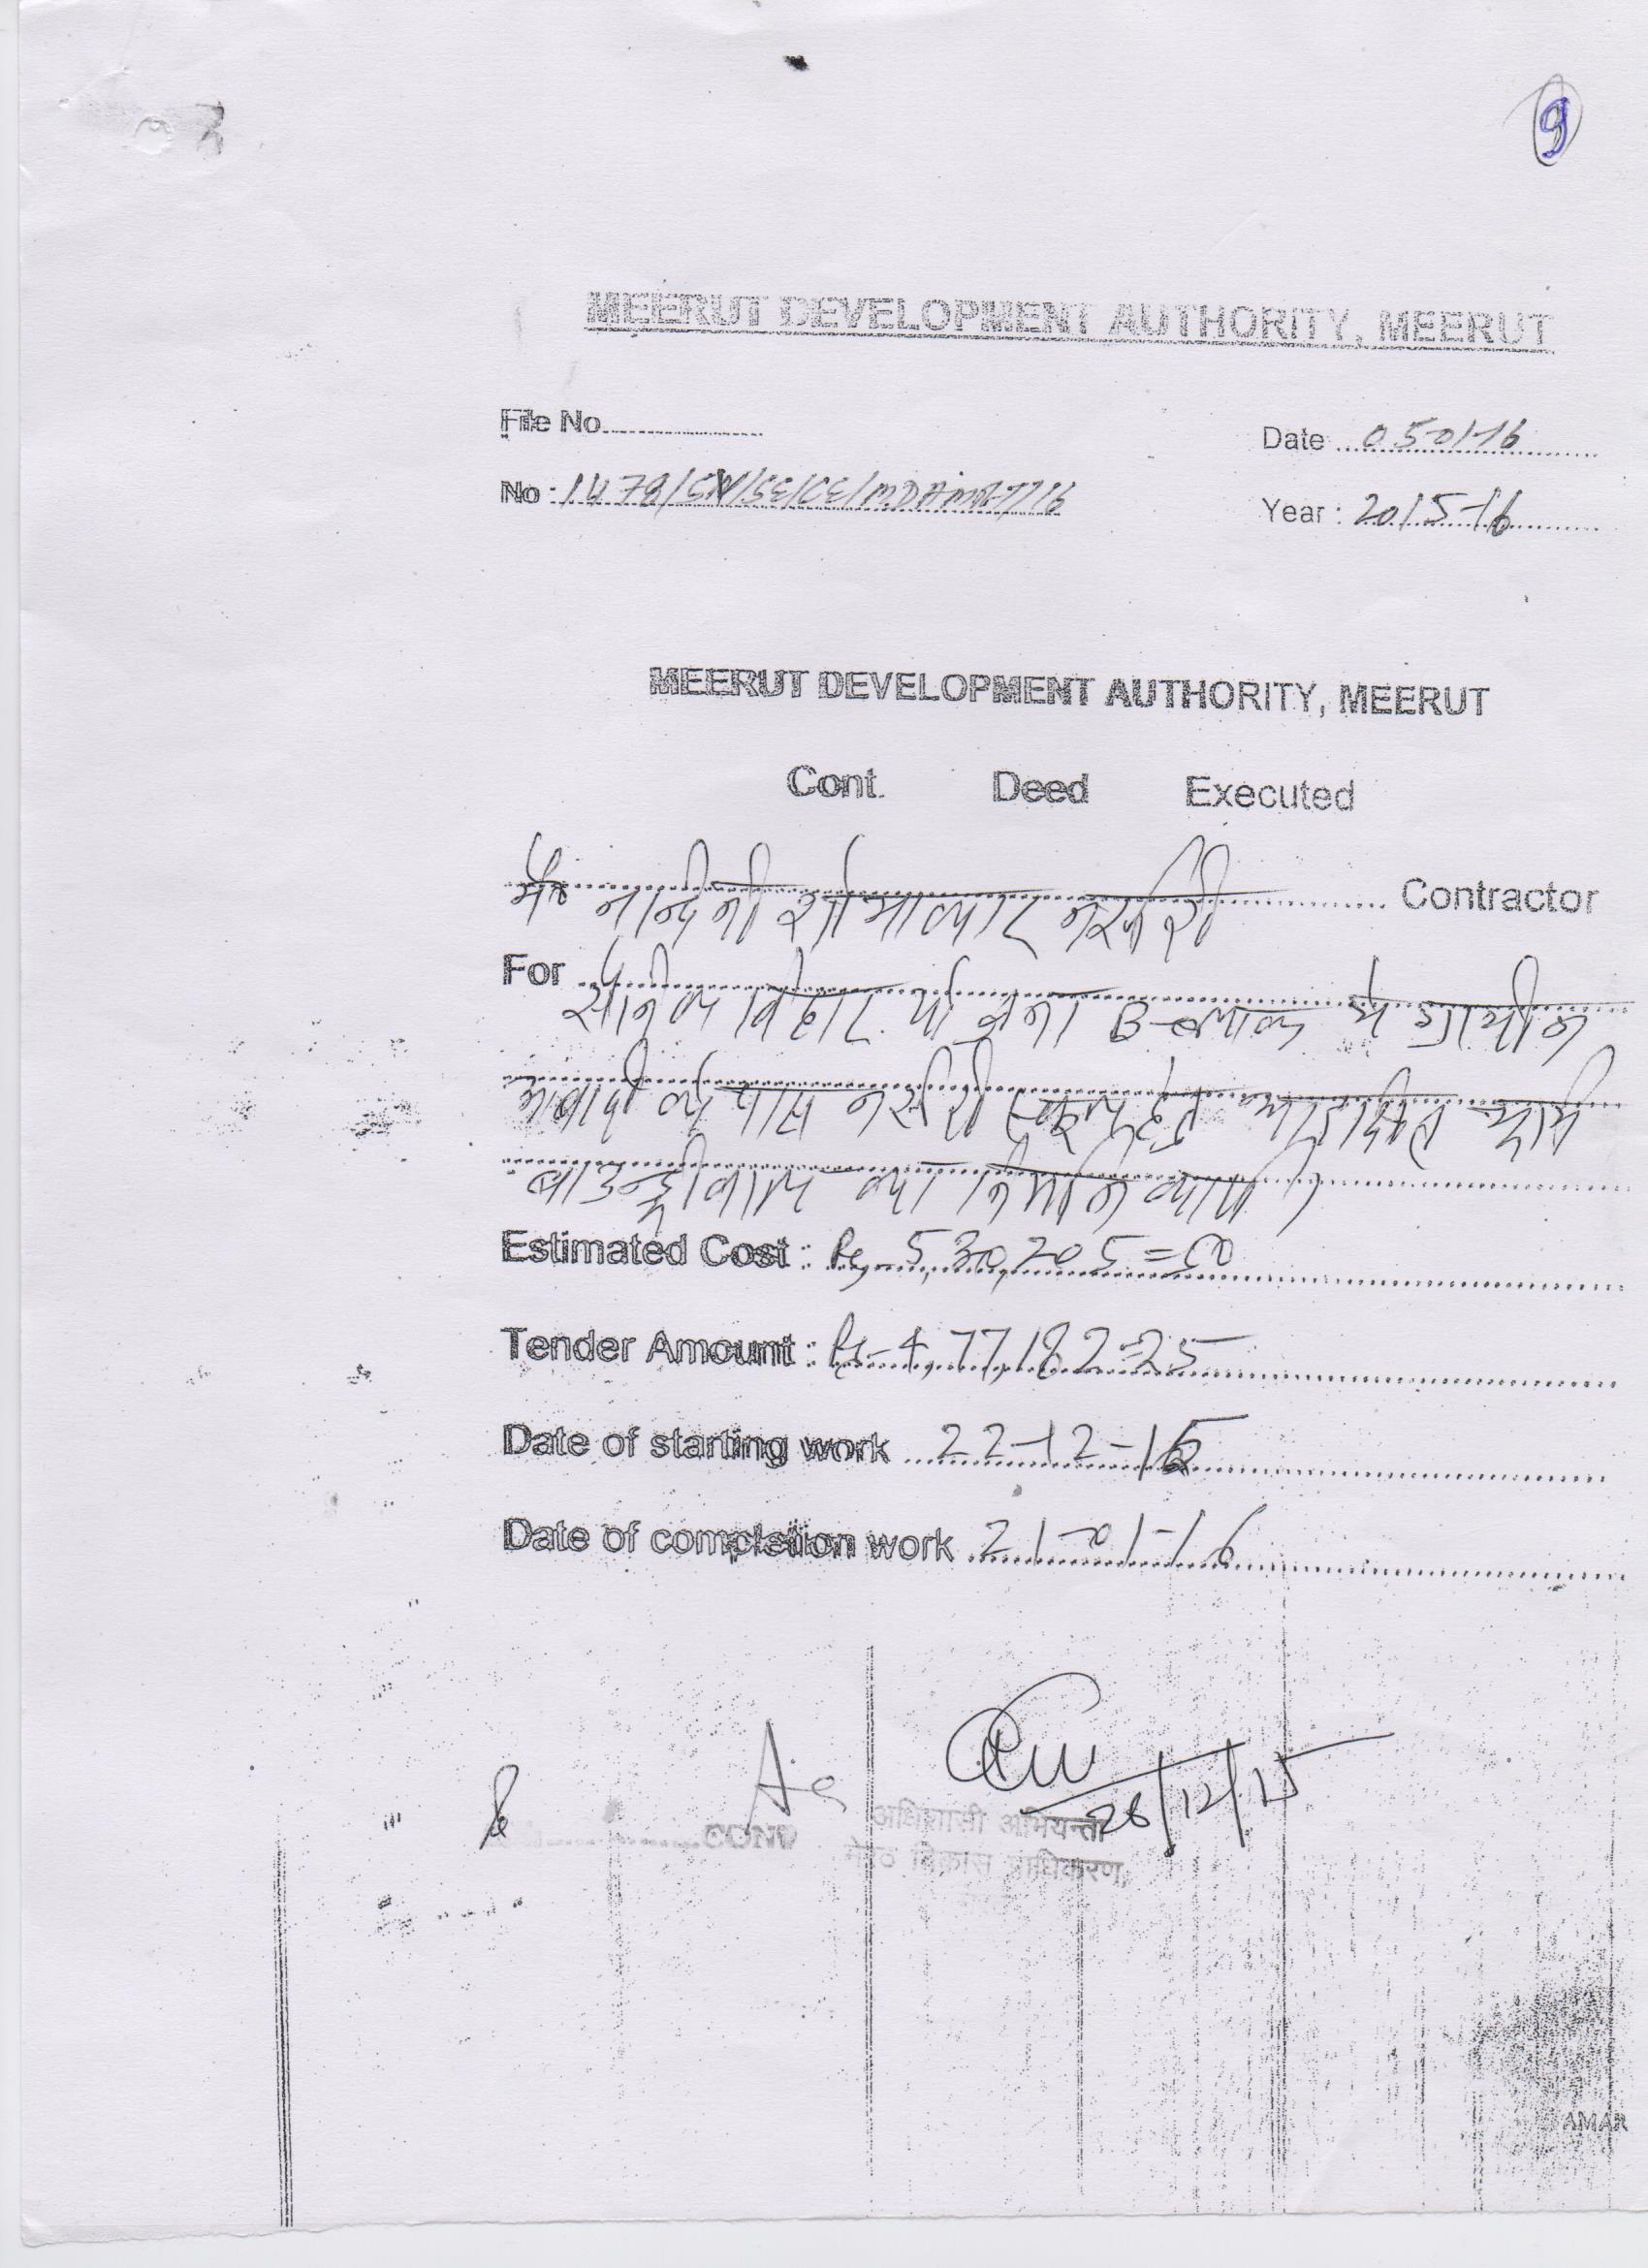 9
MEERUT DEVELOPMENT AUTHORITY, MEERUT
File No.
Date 05-01-16
No :
Year : 2015-16
MEERUT DEVELOPMENT AUTHORITY, MEERUT
Cont. Deed Executed
मै० नन्दिनी शोभाकार नर्सरी Contractor
For सैनिक विहार योजना B-ब्लाक में प्राचीन
आबादी के पास नर्सरी स्कूल हेतु भूमि
बाउन्ड्रीवाल का निर्माण कार्य।
Estimated Cost : Rs 5,30,205=00
Tender Amount : Rs 4,77,182=25
Date of starting work 22-12-15
Date of completion work 21-01-16
28/12/15
अधिशासी अभियन्ता
मेरठ विकास प्राधिकरण
AMAR